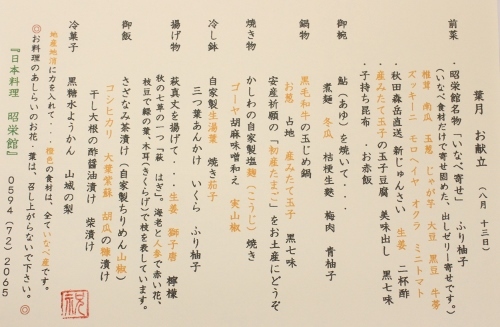 葉月 お献立 (八月 十三日)
前菜 ・昭栄館名物「いなべ寄せ」 ふり柚子
(いなべ食材だけで寄せ固めた、出しゼリー寄せです。)
椎茸 南瓜 玉葱 じゃが芋 大豆 黒豆 牛蒡
ズッキーニ モロヘイヤ オクラ ミニトマト
・秋田森岳直送 新じゅんさい 生姜 二杯酢
・産みたて玉子の玉子豆腐 美味出し 黒七味
・子持ち昆布 ・お赤飯
御椀 鮎(あゆ)を焼いて・・・
煮麺 冬瓜 桔梗生麩 梅肉 青柚子
鍋物 黒毛和牛の玉じめ鍋
お葱 占地 産みたて玉子 黒七味
安産祈願の「初産たまご」をお土産にどうぞ
焼き物 かしわの自家製塩麹(こうじ)焼き
ゴーヤ胡麻味噌和え 実山椒
冷し鉢 自家製生湯葉 焼き茄子
三つ葉あんかけ いくら ふり柚子
揚げ物 萩真丈を揚げて・・生姜 獅子唐 檸檬
秋の七草の一つ「萩 はぎ」。海老と人参で赤い花、
枝豆で緑の葉、木耳(きくらげ)で枝を表しています。
御飯 さざなみ茶漬け(自家製ちりめん山椒)
コシヒカリ 大葉紫蘇 胡瓜の糠漬け
干し大根の酢醤油漬け 柴漬け
冷菓子 黒糖水ようかん 山城の梨
地産地消に力を入れて・・橙色の食材は、全ていなべ産です。
◎お料理のあしらいのお花・葉は、召し上がらないで下さい。◎
『日本料理 昭栄館』 0594(72)2065